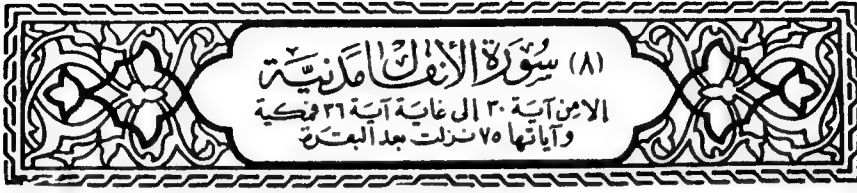 (٨) سُورَة الأنفال مَدَنيَّة
إلا من آية ٣٠ إلى غاية آية ٣٦ فمكية
وآياتها ٧٥ نزلت بعد البقرة